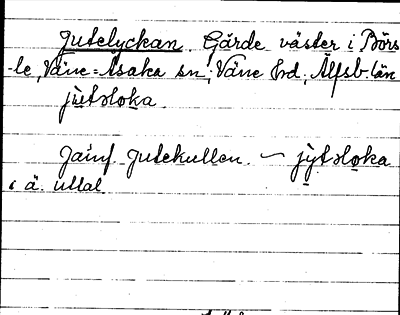 Jutelyckan. Gärde väster i Börs-
-le, Väne-Åsaka sn, Väne hd, Älfsb. län
jùtsloka.
Jämf. Jutekullen. ~ jỳtsloka
i ä. uttal